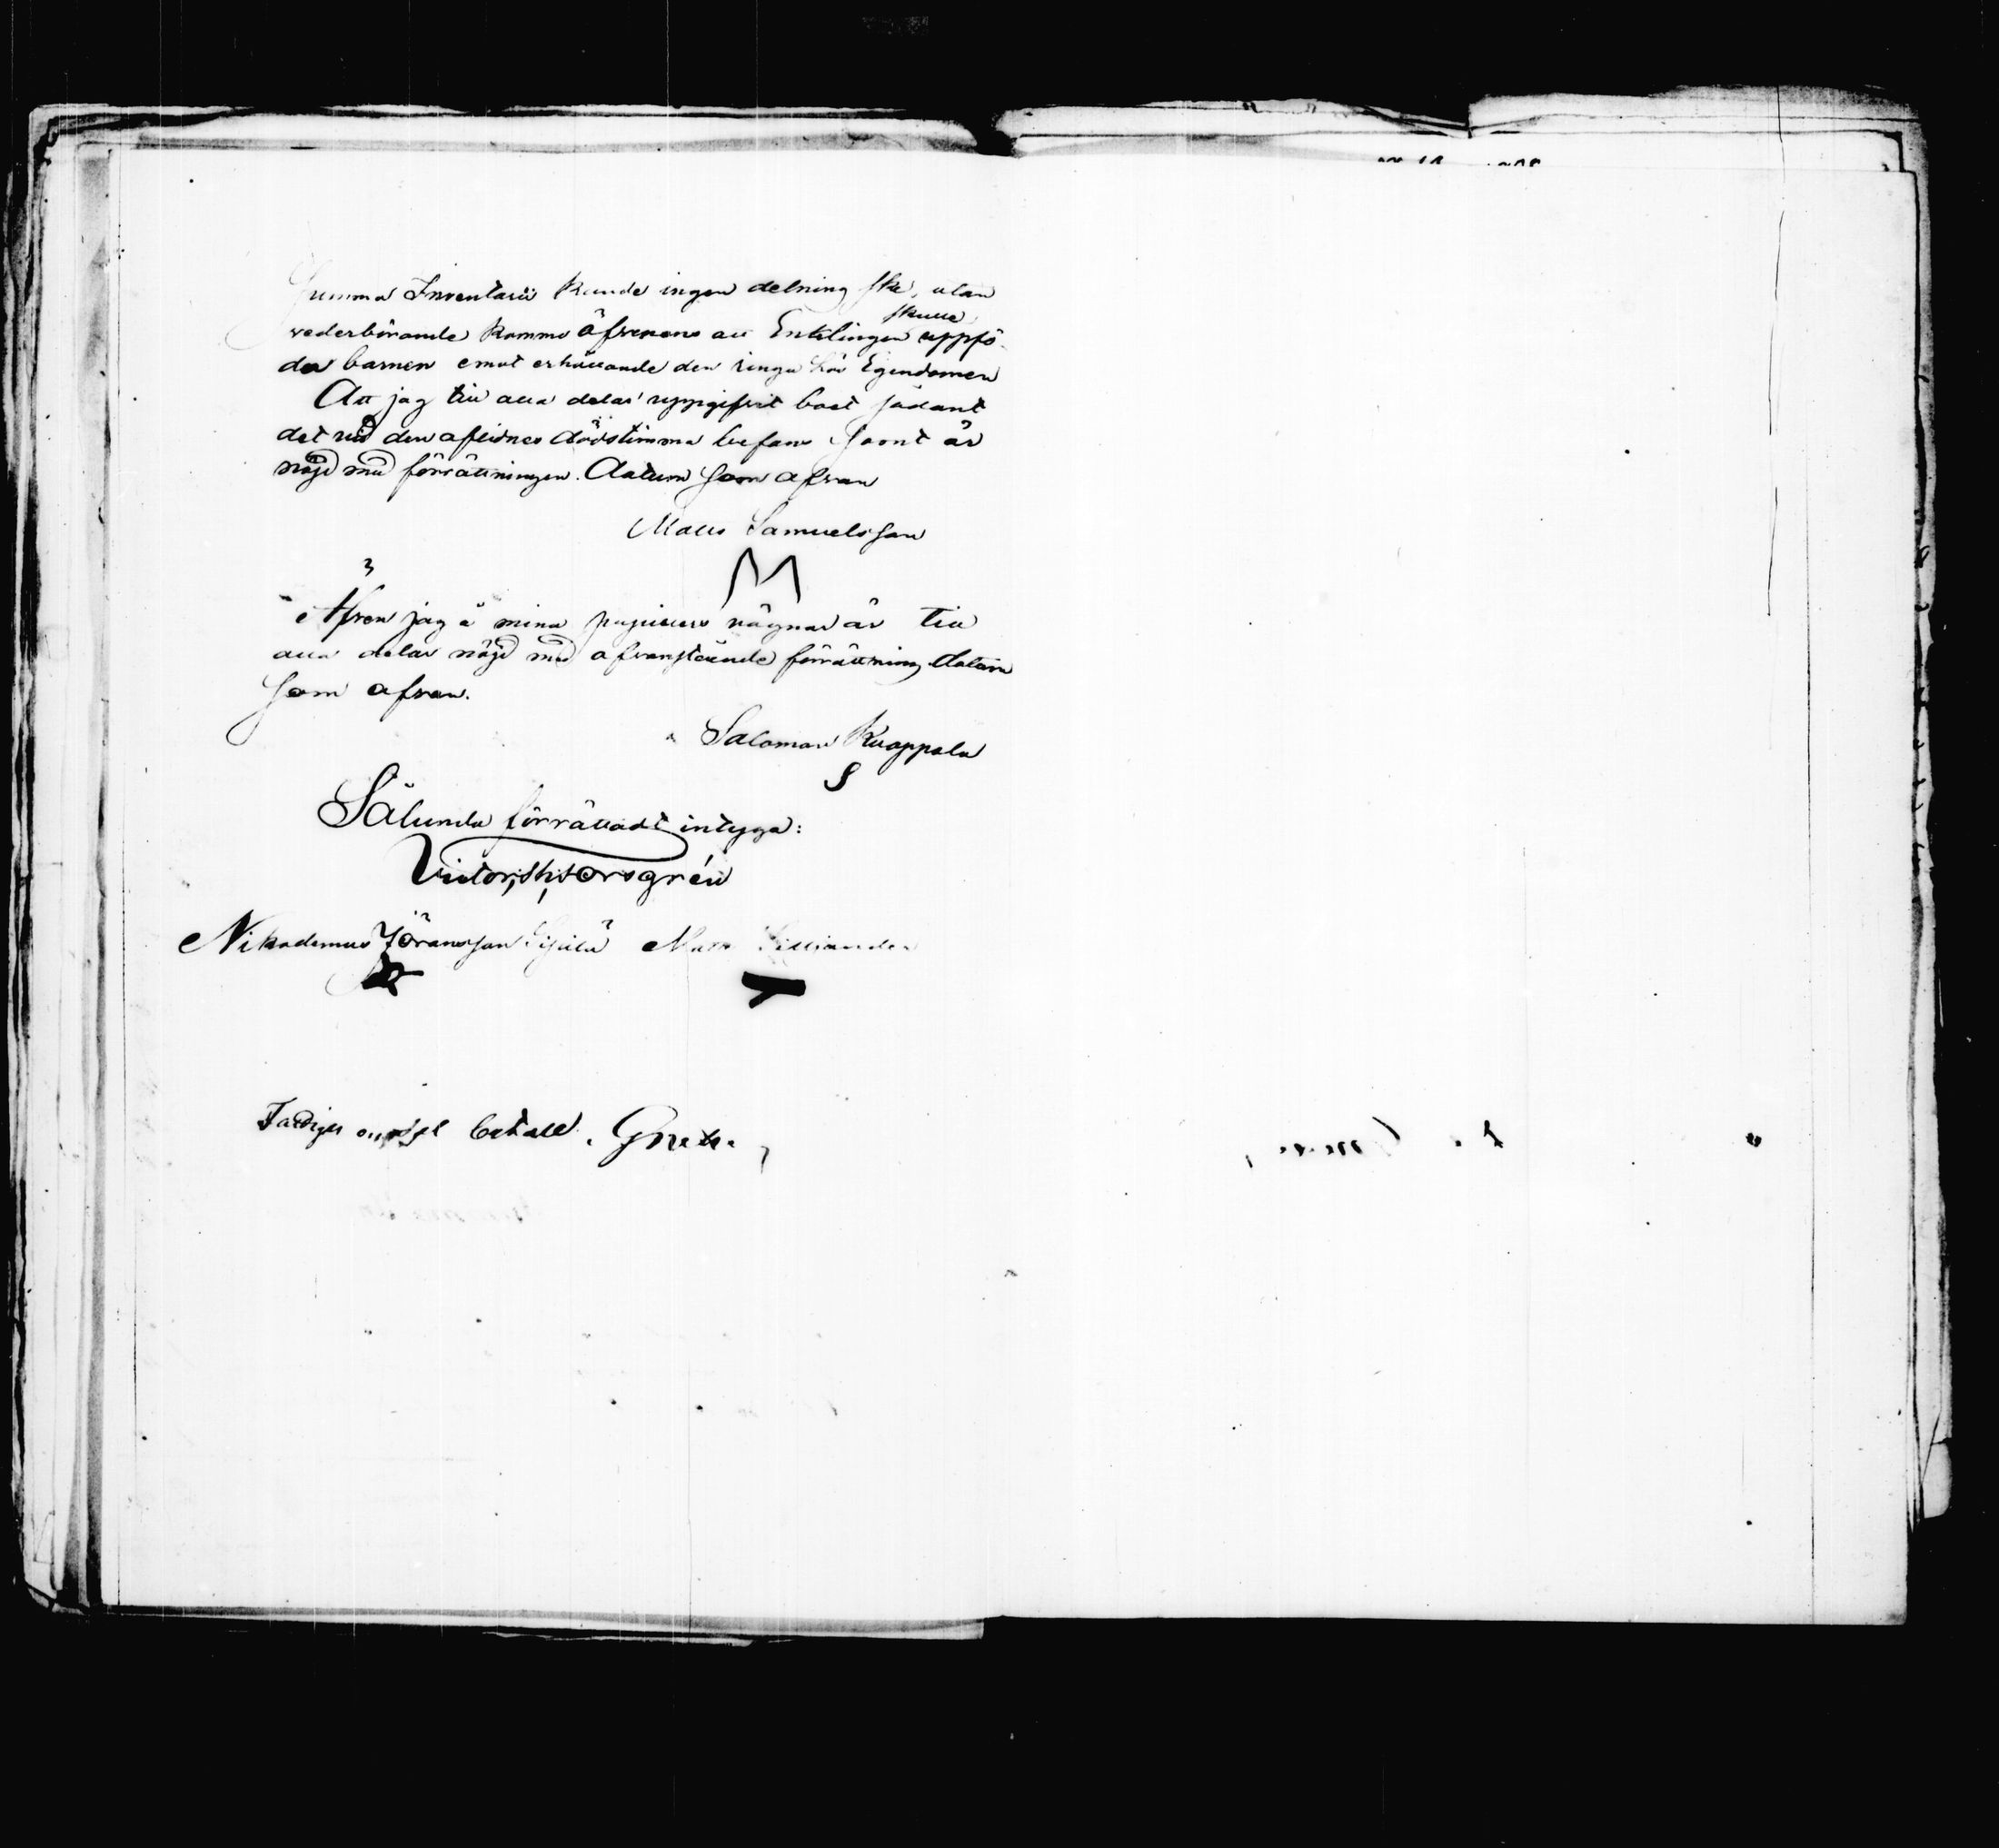 Summa Inventarii kunde ingen delning ske, utan
vederbörande kommo öfverens att Enklingen skulle uppfö-
da barnen emot erhållande den ringa Lös Egendomen
Att jag till alla delar uppgifvit boet sådant
det vid den aflidnes dödstimma befans samt är
nöjd med förrättningen. Datum som ofvan
Matts Samuelsson
M
Äfven jag å mina pupillers vägnar är till
alla delar nöjd med ofvanstående förrättning Datum
som ofvan.
Salomon Kuoppala
S
Sålunda förrättadt intyga:
Victor
Nikodemus Jöransson Matts
betalt.